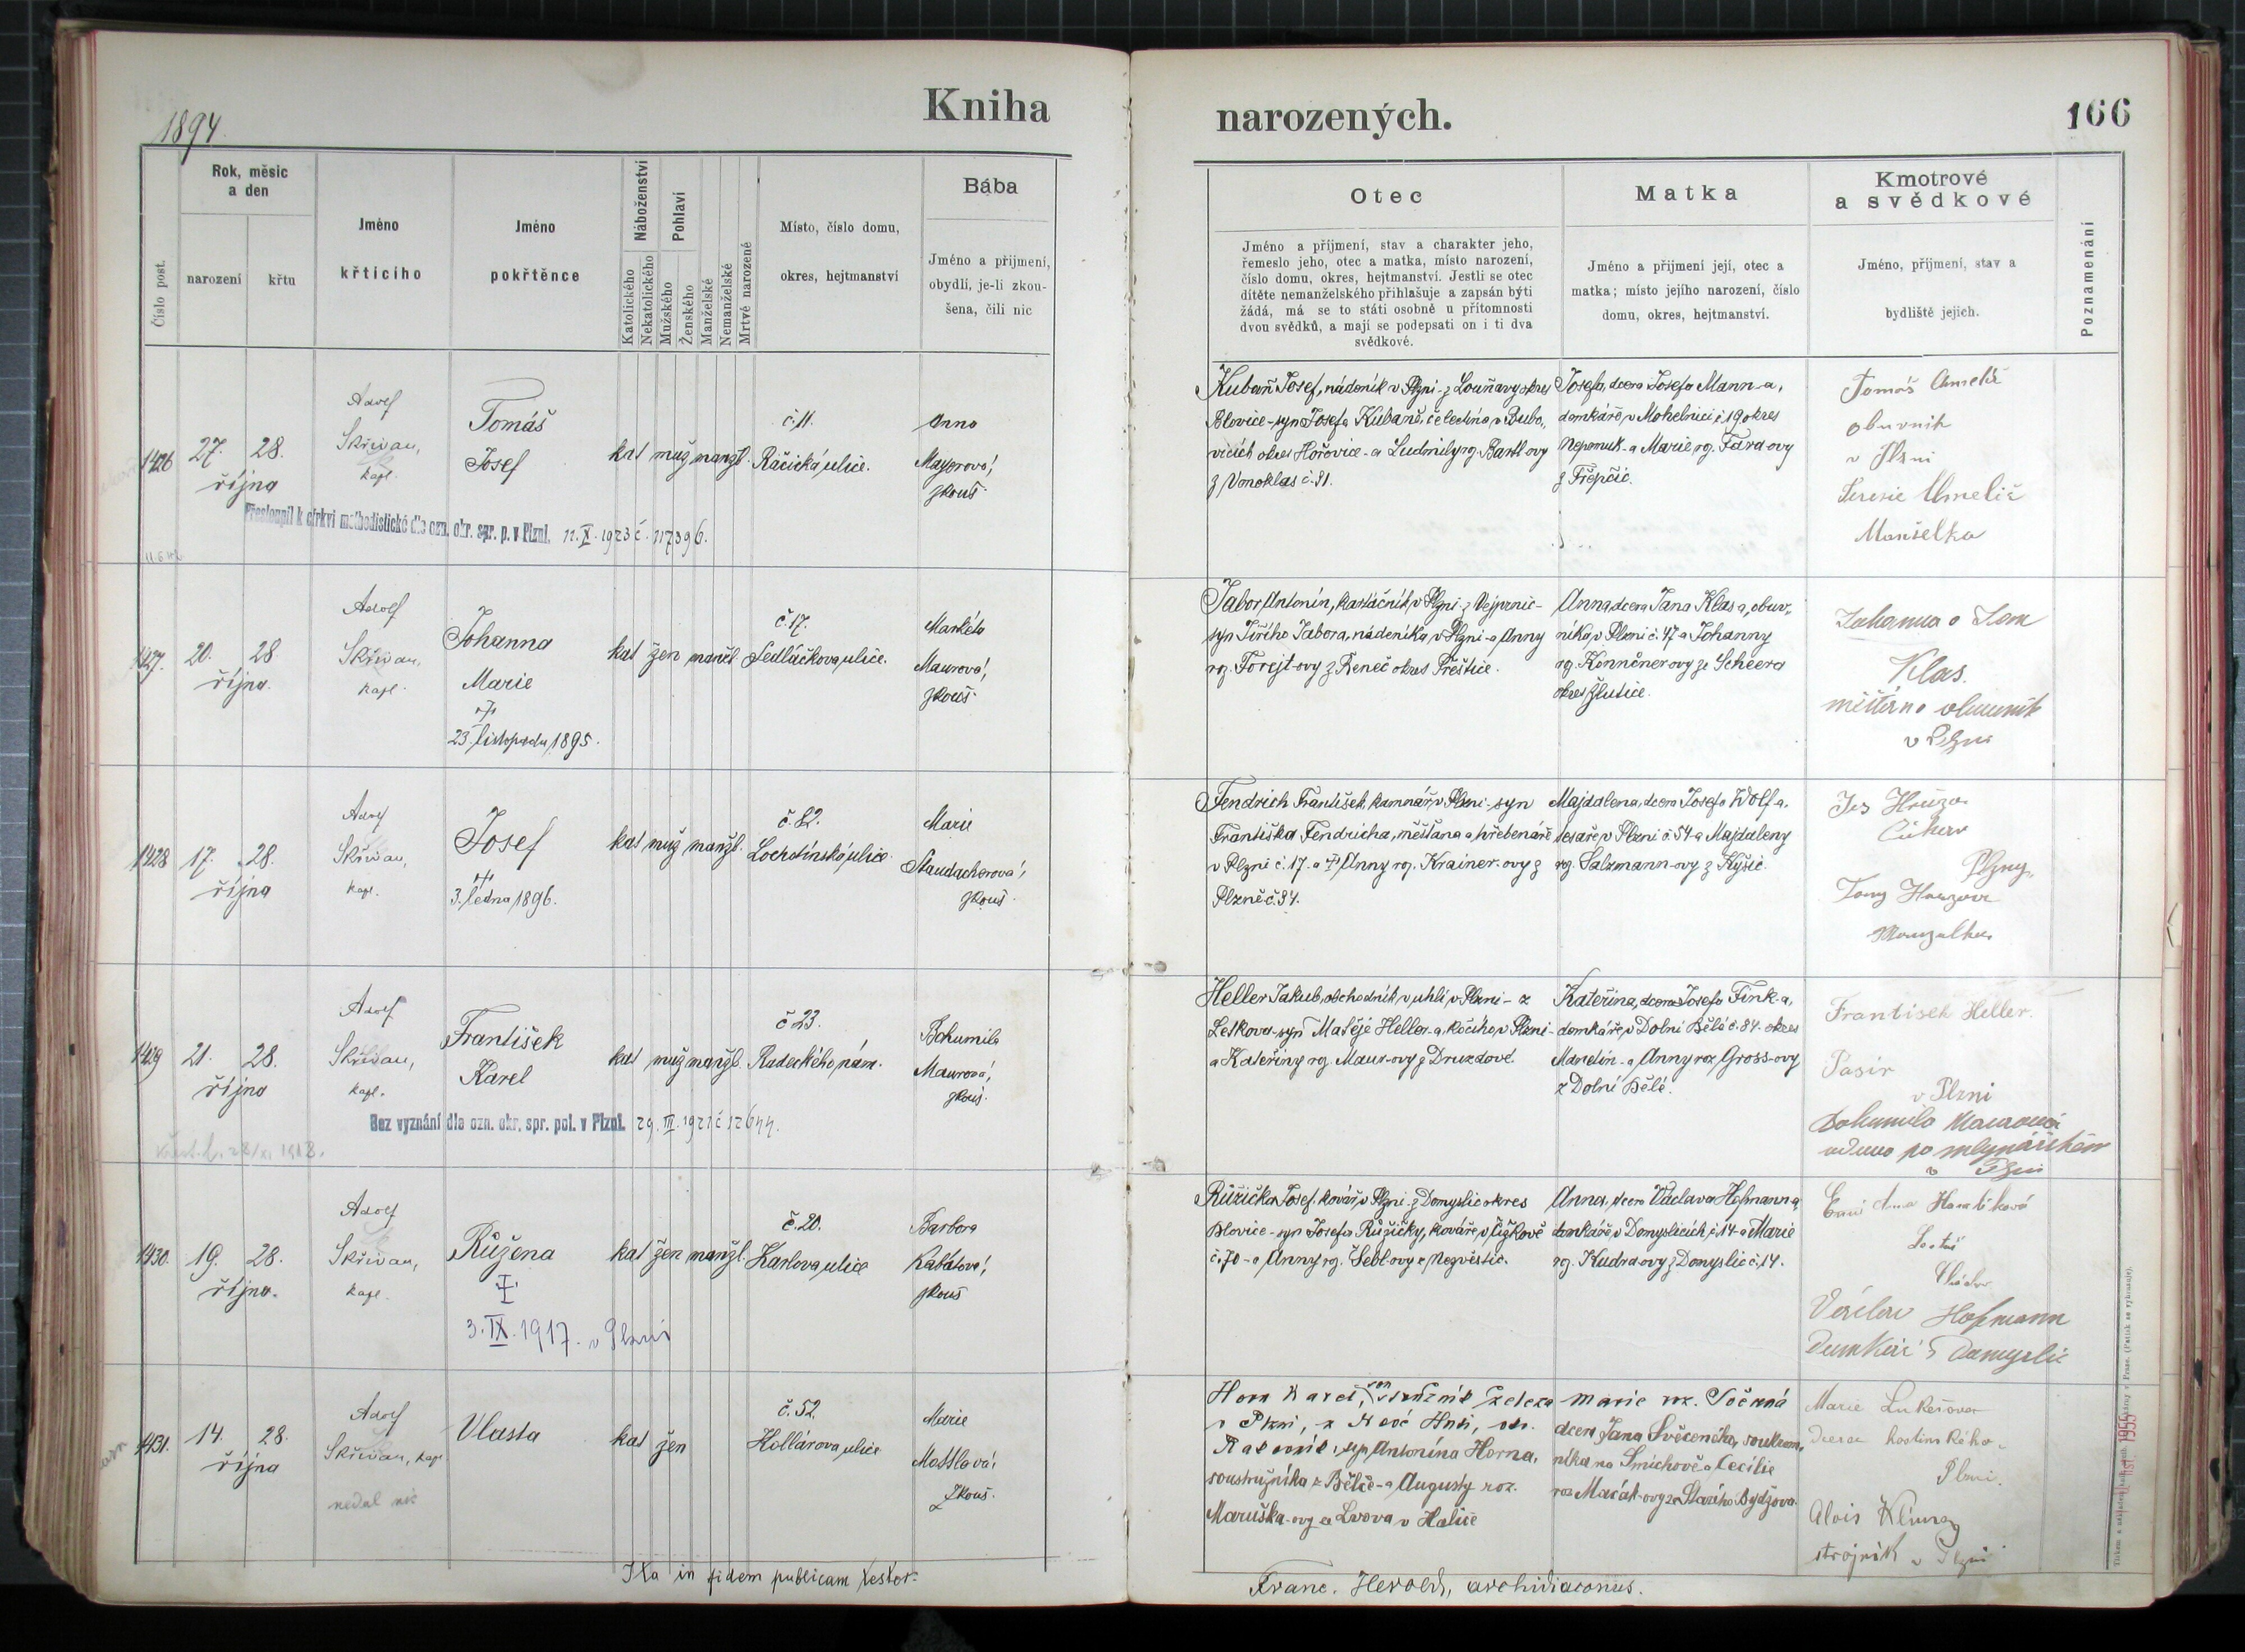 1894.
Kniha
narozených.
166
Číslo post.
Rok, měsíc
a den
narození
křtu
Jméno
křtícího
Jméno
pokřtěnce
Náboženství
Katolického
Nekatolického
Pohlaví
Mužského
Ženského
Manželské
Nemanželské
Mrtvé narozené
Místo, číslo domu,
okres, hejtmanství
Bába
Jméno a příjmení,
obydlí, je-li zkou-
šena, čili nic
Otec
Jméno a příjmení, stav a charakter jeho,
řemeslo jeho, otec a matka, místo narození,
číslo domu, okres, hejtmanství. Jestli se otec
dítěte nemanželského přihlašuje a zapsán býti
žádá, má se to státi osobně u přítomnosti
dvou svědků, a mají se podepsati on i ti dva
svědkové.
Matka
Jméno a příjmení její, otec a
matka; místo jejího narození, číslo
domu, okres, hejtmanství.
Kmotrové
a svědkové
Jméno, příjmení, stav a
bydliště jejich.
Poznamenání
1426
27. 28.
října
Adolf
Skřivan,
kapl.
Tomáš
Josef
kat muž manžl.
č. 11.
Račická ulice.
Anna
Mayerová,
zkouš.
Přestoupil k církvi methodistické dle ozn. okr. spr. p. v Plzni. 11.X.1923 č. 117396.
Kubaň Josef, nádeník v Plzni - z Louňavy okres
Blovice - syn Josefa Kubaně, čeledína v Bubo-
vicích okres Hořovice - a Ludmily roz. Bartl-ovy
z Vonoklas č. 31.
Josefa, dcera Josefa Mann-a,
domkáře v Mohelnici č. 19 okres
Nepomuk - a Marie roz. Fard-ovy
z Třepčic.
Tomáš
obuvník
v Plzni
Manželka
1427.
20. 28
října.
Adolf
Skřivan,
kapl.
Johanna
Marie
†
23. listopadu 1895.
kat žen manžl
č. 17.
Sedláčkova ulice.
Markéta
Maurová,
zkouš.
Tabor Antonín, kartáčník v Plzni - z Vejprnic -
syn Jiřího Tabora, nádeníka v Plzni - a Anny
roz. Forejt-ovy z Řeneč okres Přeštice.
Anna, dcera Jana Klas-a, obuv-
níka v Plzni č. 47 a Johanny
roz. Konnčner-ovy ze Scheera
okres Žlutice.
Johanna a Jan
Klas.
měšťan a obuvník
v Plzni
1428
17. 28.
října
Adolf
Skřivan,
kapl.
Josef
†
3. ledna 1896.
kat muž manžl.
č. 82.
Lochotínská ulice.
Marie
Staudacherová,
zkouš.
Fendrich František, kamnář v Plzni - syn
Františka Fendricha, měšťana a hřebenáře
v Plzni č. 17 - a † Anny roz. Krainer-ovy z
Plzně č. 34.
Majdalena, dcera Josefa Wolf-a,
tesaře v Plzni č. 54 a Majdaleny
roz. Salzmann-ovy z Kyšic.
Hruza
Plzny
1429
21. 28.
října
Adolf
Skřivan,
kapl.
František
Karel
kat muž manžl.
č 23.
Radeckého nám.
Bohumila
Maurová,
zkouš.
Bez vyznání dle ozn. okr. spr. pol. v Plzni. 29.III.1921 č 12644.
Heller Jakub, obchodník v uhlí v Plzni - z
Letkova - syn Matěje Heller-a, kočího v Plzni -
a Kateřiny roz. Maur-ovy z Druzdové.
Kateřina, dcera Josefa Fink-a,
domkáře v Dolní Bělé č. 84. okres
Manetín - a Anny roz. Gross-ovy
z Dolní Bělé.
František Heller.
v Plzni
Bohumila Maurová
vdova po mlynářském
v Plzni
1430.
19. 28.
října.
Adolf
Skřivan,
kapl.
Růžena
†
3.IX.1917. v Plzni
kat žen manžl.
č. 20.
Karlova ulice
Barbora
Kabátová,
zkouš
Růžička Josef, kovář v Plzni - z Domyslic okres
Blovice - syn Josefa Růžičky, kováře v Čižkově
č. 70 - a Anny roz. Šebl-ovy z Nezvěstic.
Anna, dcera Václava Hofmanna,
domkáře v Domyslicích č. 14 - a Marie
roz. Kudra-ovy z Domyslic č. 14.
Václav Hofmann
Domkář z Domyslic
1431.
14. 28.
října
Adolf
Skřivan, kapl.
nedal nic
Vlasta
kat žen
č. 52.
Hollárova ulice
Marie
Mottlová,
zkouš.
Horn Karel, soustružník železa
v Plzni, z Nové Huti, okr.
Rakovník, syn Antonína Horna,
soustružníka z Bělče - a Augusty roz.
Maruška-ovy ze Lvova v Haliči
Marie roz. Sočená
dcera Jana Svěceného, soukrom-
níka na Smíchově a Cecilie
roz. Macák-ovy ze Starého Bydžova.
Marie Lukešova
dcera hostinského
Plzni.
Alois Klima
strojník v Plzni
Ita in fidem publicam testor:
Franc. Herold, archidiaconus.